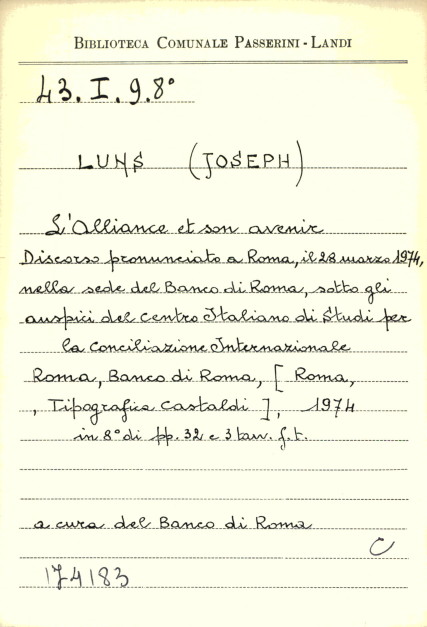 BIBLIOTECA COMUNALE PASSERINI - LANDI
43. I. 9. 8°
LUNS (JOSEPH)
L'Alliance et son avenir
Discorso pronunciato a Roma, il 28 marzo 1974,
nella sede del Banco di Roma, sotto gli
auspici del Centro Italiano di Studi per
la Conciliazione Internazionale
Roma, Banco di Roma, [ Roma,
, Tipografica Castaldi ], 1974
in 8° di pp. 32 e 3 tav. f.t.
a cura del Banco di Roma
C
174183